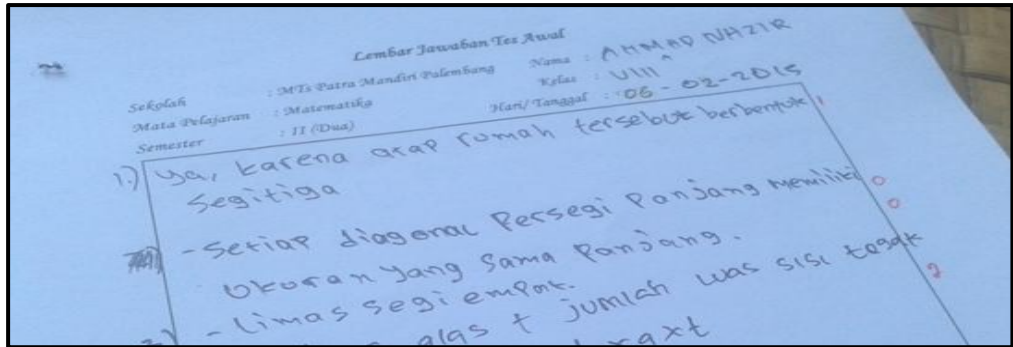 Lembar Jawaban Tes Awal
Sekolah : MTs Patra Mandiri Palembang
Mata Pelajaran : Matematika
Semester : II (Dua)
Nama : AHMAD NHZIR
Kelas : VIII A
Hari/Tanggal : 06-02-2015
1.) Ya, karena atap rumah tersebut berbentuk 1
Segitiga
- Setiap diagonal Persegi Panjang memiliki 0
Ukuran yang sama Panjang. 0
- Limas segi empat.
alas + jumlah luas sisi tegak 2
axt